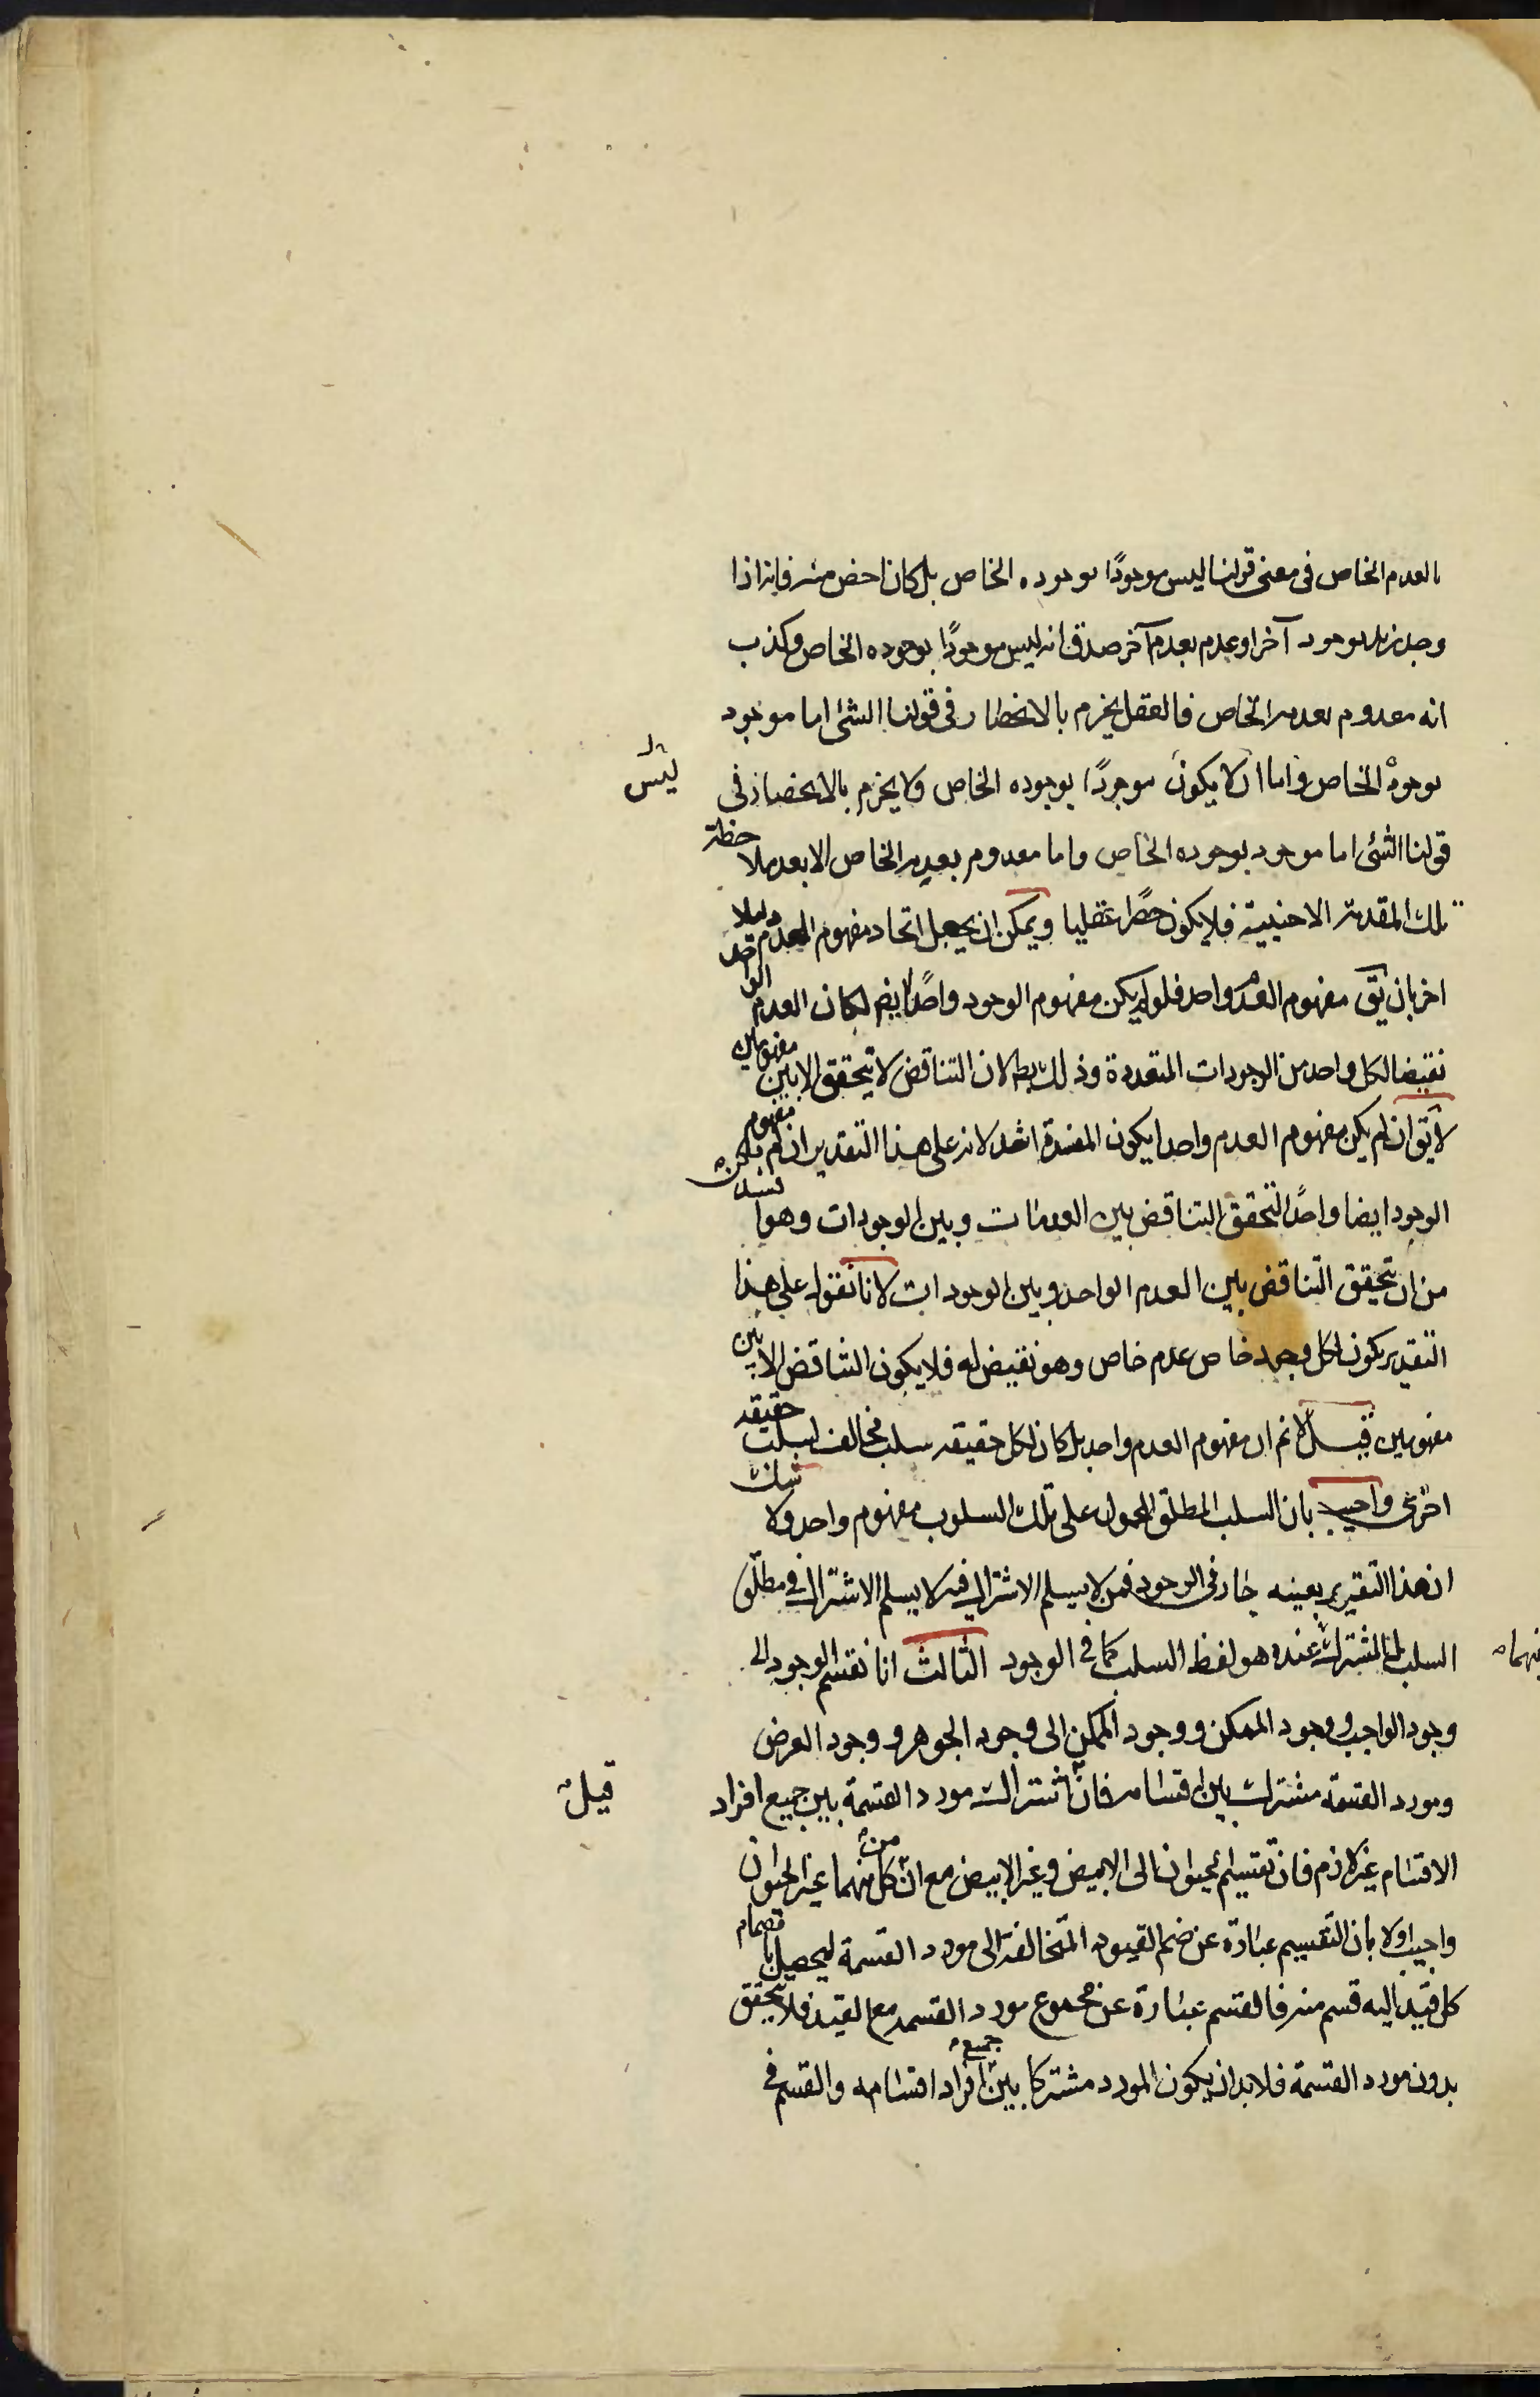 بالعدم الخاص في معنى قولنا ليس موجودًا بوجوده الخاص بل كان اخص منه فانه اذا
وجد زيد بوجود آخر او عدم بعدم آخر صدق انه ليس موجودًا بوجوده الخاص وكذب
انه معدوم بعدمه الخاص فالعقل يجزم بالانحصار في قولنا الشئ اما موجود
بوجوده الخاص واما ان لا يكون موجودًا بوجوده الخاص ولا يجزم بالانحصار في
قولنا الشئ اما موجود بوجوده الخاص واما معدوم بعدمه الخاص الا بعد ملاحظة
تلك المقدمة الاجنبية فلا يكون حصرًا عقليا ويمكن ان يجعل اتحاد مفهوم العدم دليلا
اخر بان يق مفهوم العدم واحد فلو لم يكن مفهوم الوجود واحدًا ايضا لكان العدم الواحد
نقيضا لكل واحد من الوجودات المتعددة وذلك بط لان التناقض لا يتحقق الا بين مفهومين
لا يق ان لم يكن مفهوم العدم واحدا يكون المفسدة اشد لانه على هذا التقدير ان لم يكن مفهوم
الوجود ايضا واحدًا لتحقق التناقض بين العدمات وبين الوجودات وهو افسد
من ان يتحقق التناقض بين العدم الواحد وبين الوجودات لانا نقول على هذا
التقدير يكون لكل وجود خاص عدم خاص وهو نقيض له فلا يكون التناقض الا بين
مفهومين قيل لا نم ان مفهوم العدم واحد بل كان لكل حقيقه سلب مخالف لسلب حقيقه
اخرى واجيب بان السلب المطلق المحمول على تلك السلوب مفهوم واحد ولا شك
ان هذا التقرير بعينه جار في الوجود فمن لا يسلم الاشتراك فيه لا يسلم الاشتراك في مطلق
السلب بل المشترك عنده هو لفظ السلب كما في الوجود الثالث انا نقسم الوجود الى
وجود الواجب ووجود الممكن ووجود الممكن الى وجود الجوهر ووجود العرض
ومورد القسمة مشترك بين اقسامه فان اشتراك مورد القسمة بين جميع افراد
قيل
الاقسام غير لازم فان تقسيم الحيوان الى الابيض وغير الابيض مع ان كل منهما من غير الحيوان
واجيب اولا بان التقسيم عبارة عن ضم القيود المتخالفة الى مورد القسمة ليحصل بانضمام
كل قيد اليه قسم منه فالقسم عبارة عن مجموع مورد القسمه مع القيد فلا يتحقق
بدون مورد القسمة فلا بد ان يكون المورد مشتركا بين جميع افراد اقسامه والقسم في